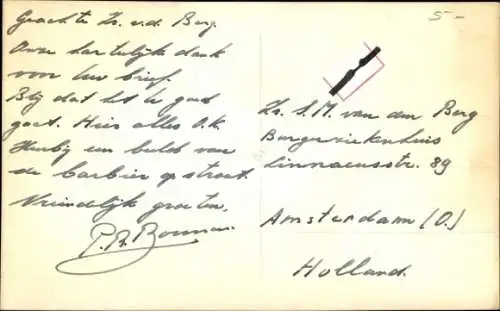 Geachte Zr. v.d. Berg.
Over hartelijke dank
voor Uw brief.
Blij dat het U goed
gaat. Hier alles O.K.
Hierbij een beeld van
de barbier op straat.
Vriendelijk groeten,
5-
Zr. S.M. van den Berg
Burgerziekenhuis
Linnaeusstr. 89
Amsterdam (O.)
Holland.